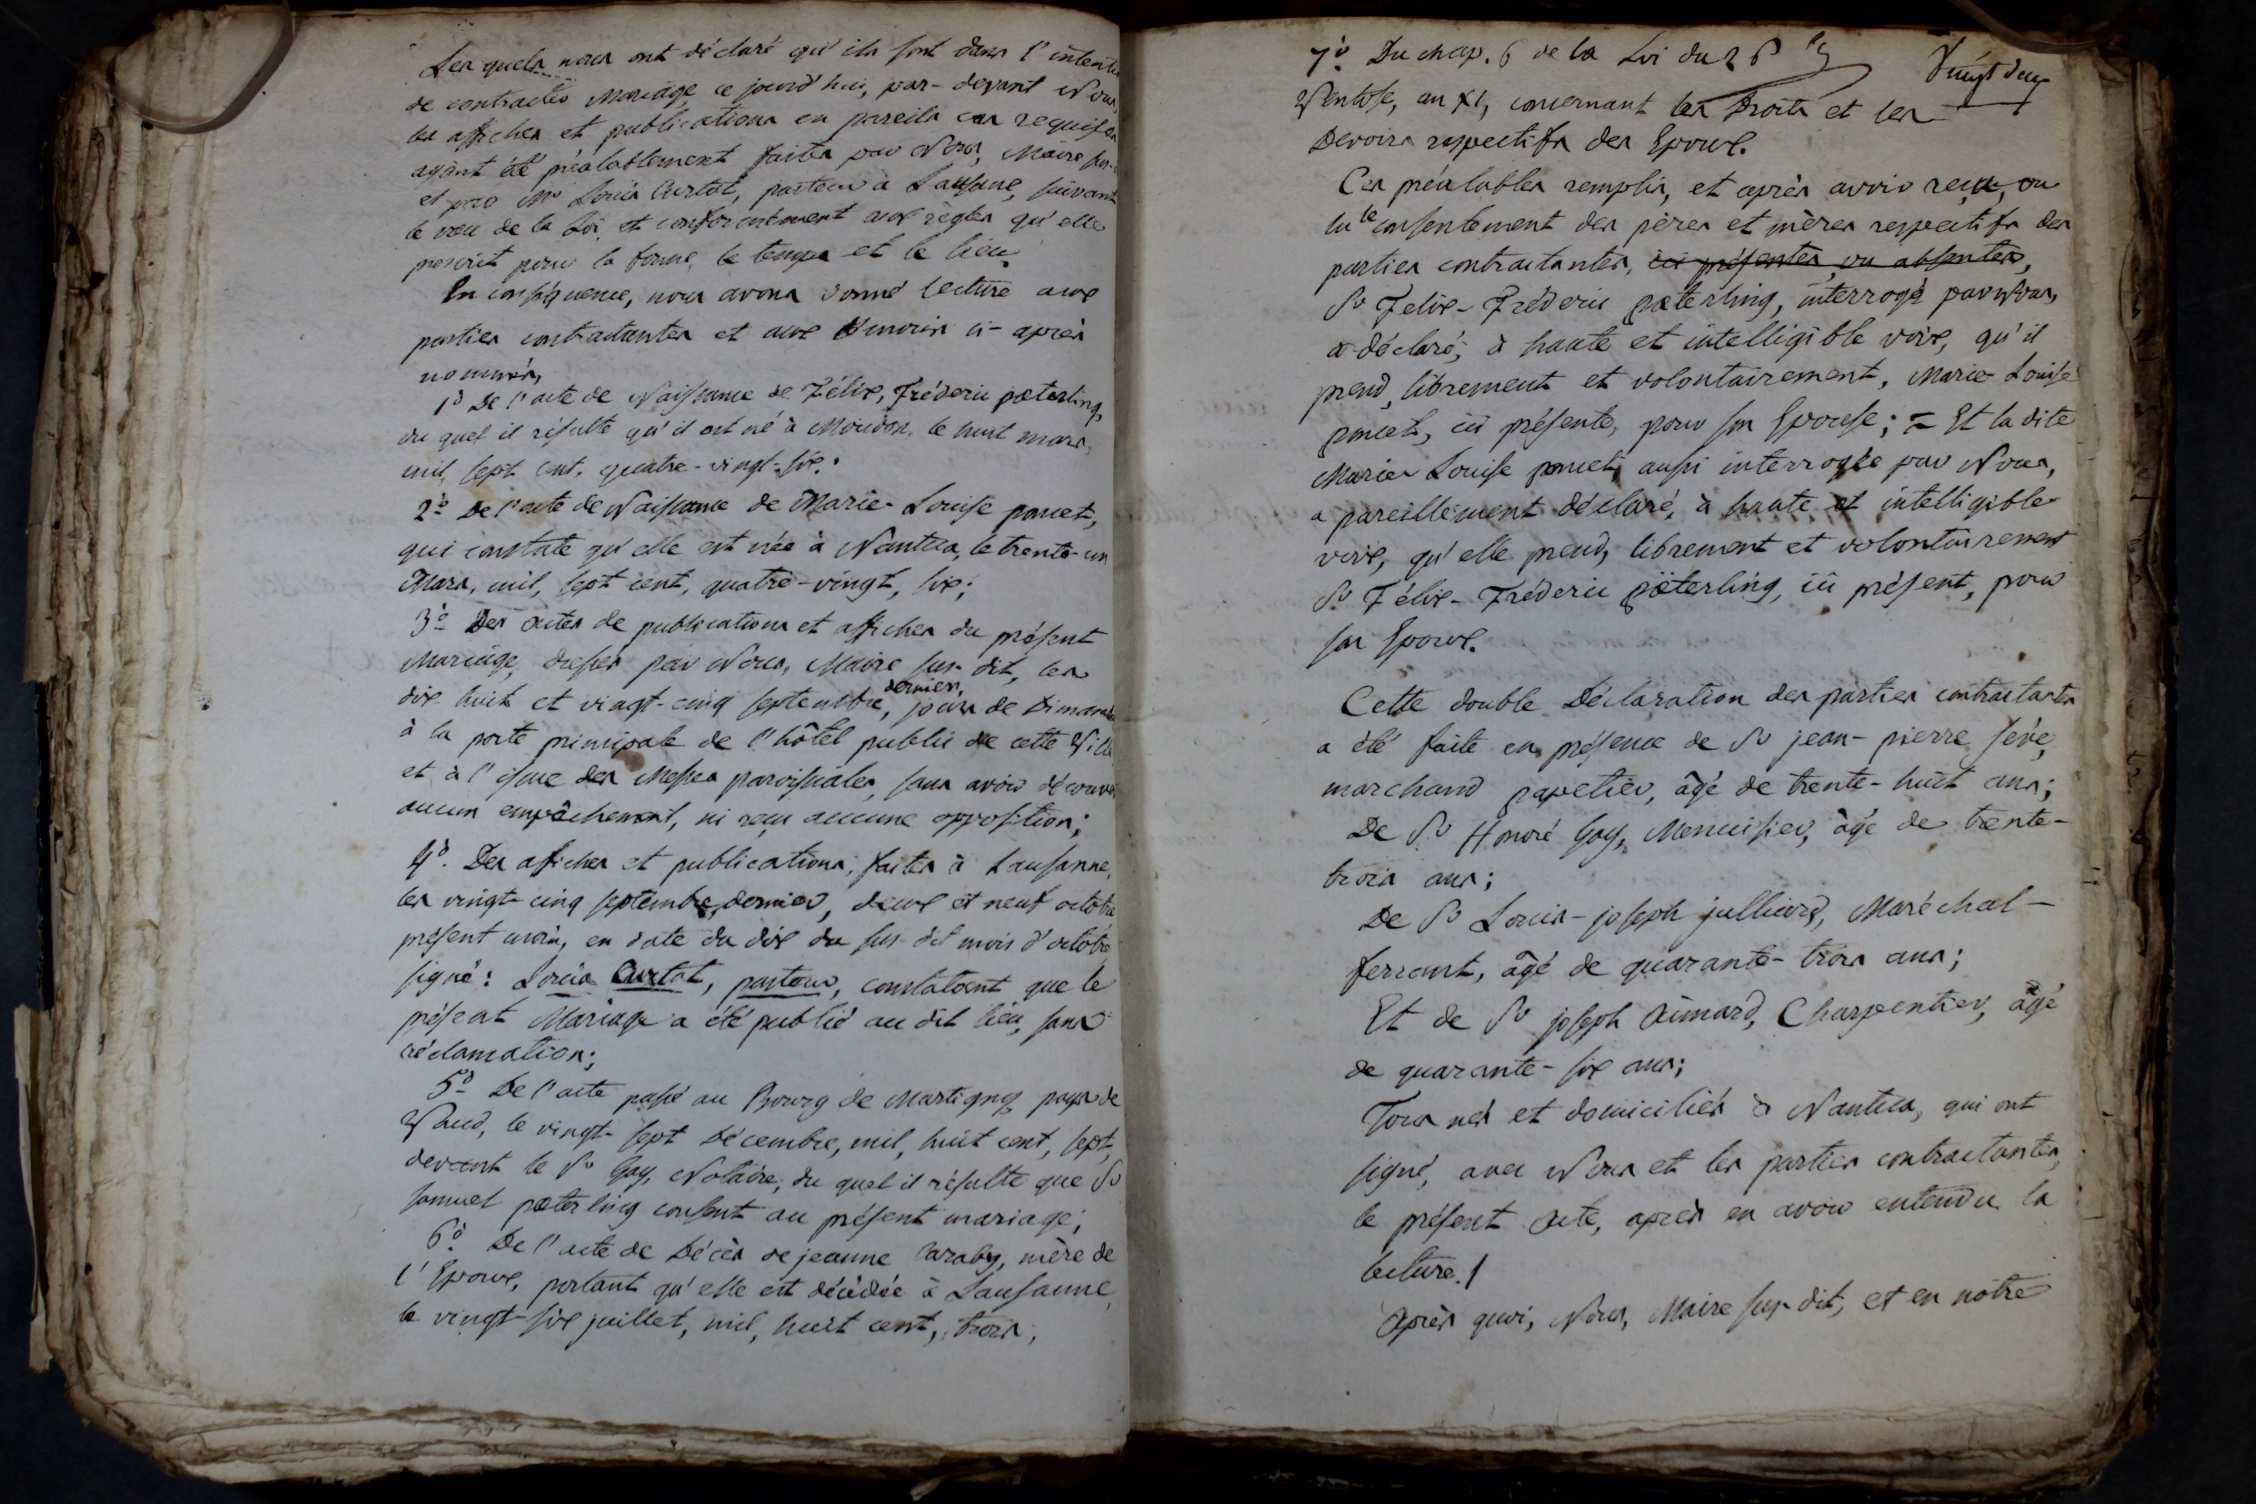 Les quels nous ont déclaré qu'ils sont dans l'intention
de contracter Mariage, ce jourd'hui, par-devant Nous,
les affiches et publications en pareils cas requises
ayant été préalablement faites par Nous, Maire sus-
et par Mr Louis Curtat, pasteur à Lausane, suivant
le vœu de la Loi, et conformément aux règles qu'elle
prescrit pour la forme, le temps et le lieu.
En conséquence, nous avons donné lecture aux
parties contractantes et aux témoins ci-après
nommés,
1o De l'acte de Naissance de Félix, Fréderic pæterling,
du quel il résulte qu'il est né à Moudon, le huit mars,
mil, sept cent, quatre-vingt-six;
2o De l'acte de Naissance de Marie-Louise poncet,
qui constate qu'elle est née à Nantua, le trente-un
Mars, mil, sept cent, quatre-vingt, six;
3o Des actes de publications et affiches du présent
Mariage, dressés par Nous, Maire sus-dit, les
dix huit et vingt-cinq septembre dernier, jours de Dimanche
à la porte principale de l'hôtel public de cette Ville
et à l'issue des Messes paroissiales, sans avoir découvert
aucun empêchement, ni reçu aucune opposition;
4o Des affiches et publications, faites à Lausanne,
les vingt-cinq septembre dernier, deux et neuf octobre
présent mois, en date du dix du sus-dit mois d'octobre
signé: Louis Curtat, pasteur, constatant que le
présent Mariage a été publié au dit lieu, sans
réclamation;
5o De l'acte passé au Bourg de Martigny pays de
Vaud, le vingt-sept Décembre, mil, huit cent, sept,
devant le Sr Gay, Notaire, du quel il résulte que Sr
samuel pæterling consent au présent mariage;
6o De l'acte de Décès de jeanne Caraby, mère de
l'Epoux, portant qu'elle est décédée à Lausanne,
le vingt-six juillet, mil, huit cent, trois;
Vingt deux
7o Du chap. 6 de la Loi du 26
Ventose, an XI, concernant les Droits et les
Devoirs respectifs des Epoux.
Ces préalables remplis, et après avoir reçu, ou
lu le consentement des pères et mères respectifs des
parties contractantes, ici présentes, ou absentes,
Sr Felix-Fréderic pæterling, interrogé par Nous,
a déclaré, à haute et intelligible voix, qu'il
prend, librement et volontairement, Marie Louise
poncet, ici présente, pour son Epouse; = Et la dite
Marie Louise poncet, aussi interrogée par Nous,
a pareillement déclaré, à haute et intelligible
voix, qu'elle prend, librement et volontairement
Sr Félix-Fréderic pæterling, ici présent, pour
son Epoux.
Cette double Déclaration des parties contractantes
a été faite en présence de Sr jean-pierre sève,
marchand papetier, âgé de trente-huit ans;
De Sr Honoré Goy, Menuisier, âgé de trente-
trois ans;
De Sr Louis-joseph julliard, Maréchal-
ferrant, âgé de quarante-trois ans;
Et de Sr joseph Aimard, Charpentier, âgé
de quarante-six ans;
Tous nés et domiciliés à Nantua, qui ont
signé, avec Nous et les parties contractantes,
le présent acte, après en avoir entendu la
lecture./
Après quoi, Nous, Maire sus-dit, et en nôtre